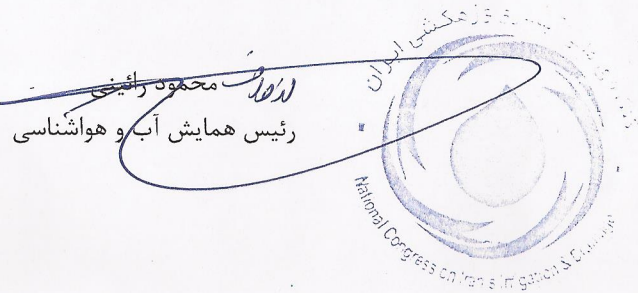 محمود رائینی
رئیس همایش آب و هواشناسی
ایران
National Congress on Iran's Irrigation &